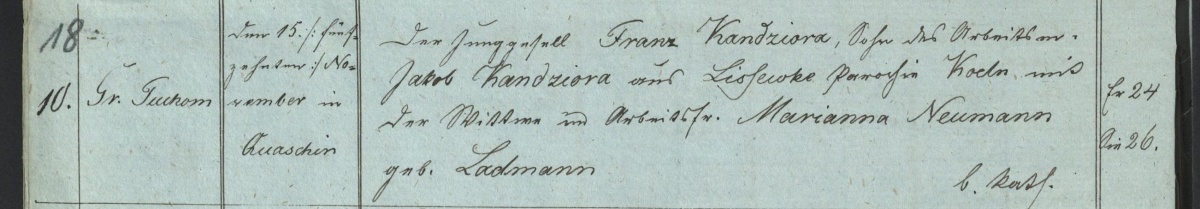 18
10.
Gr. Tuchom
Den 15. /: fünf-
zehnten :/ No-
vember in
Quaschin
Der Junggesell Franz Kandziora, Sohn des Arbeitsm.
Jakob Kandziora aus Lissewke Parochie Koeln mit
der Wittwe und Arbeitsfr. Marianna Neumann
geb. Ladmann
b. kath.
Er 24
Sie 26.